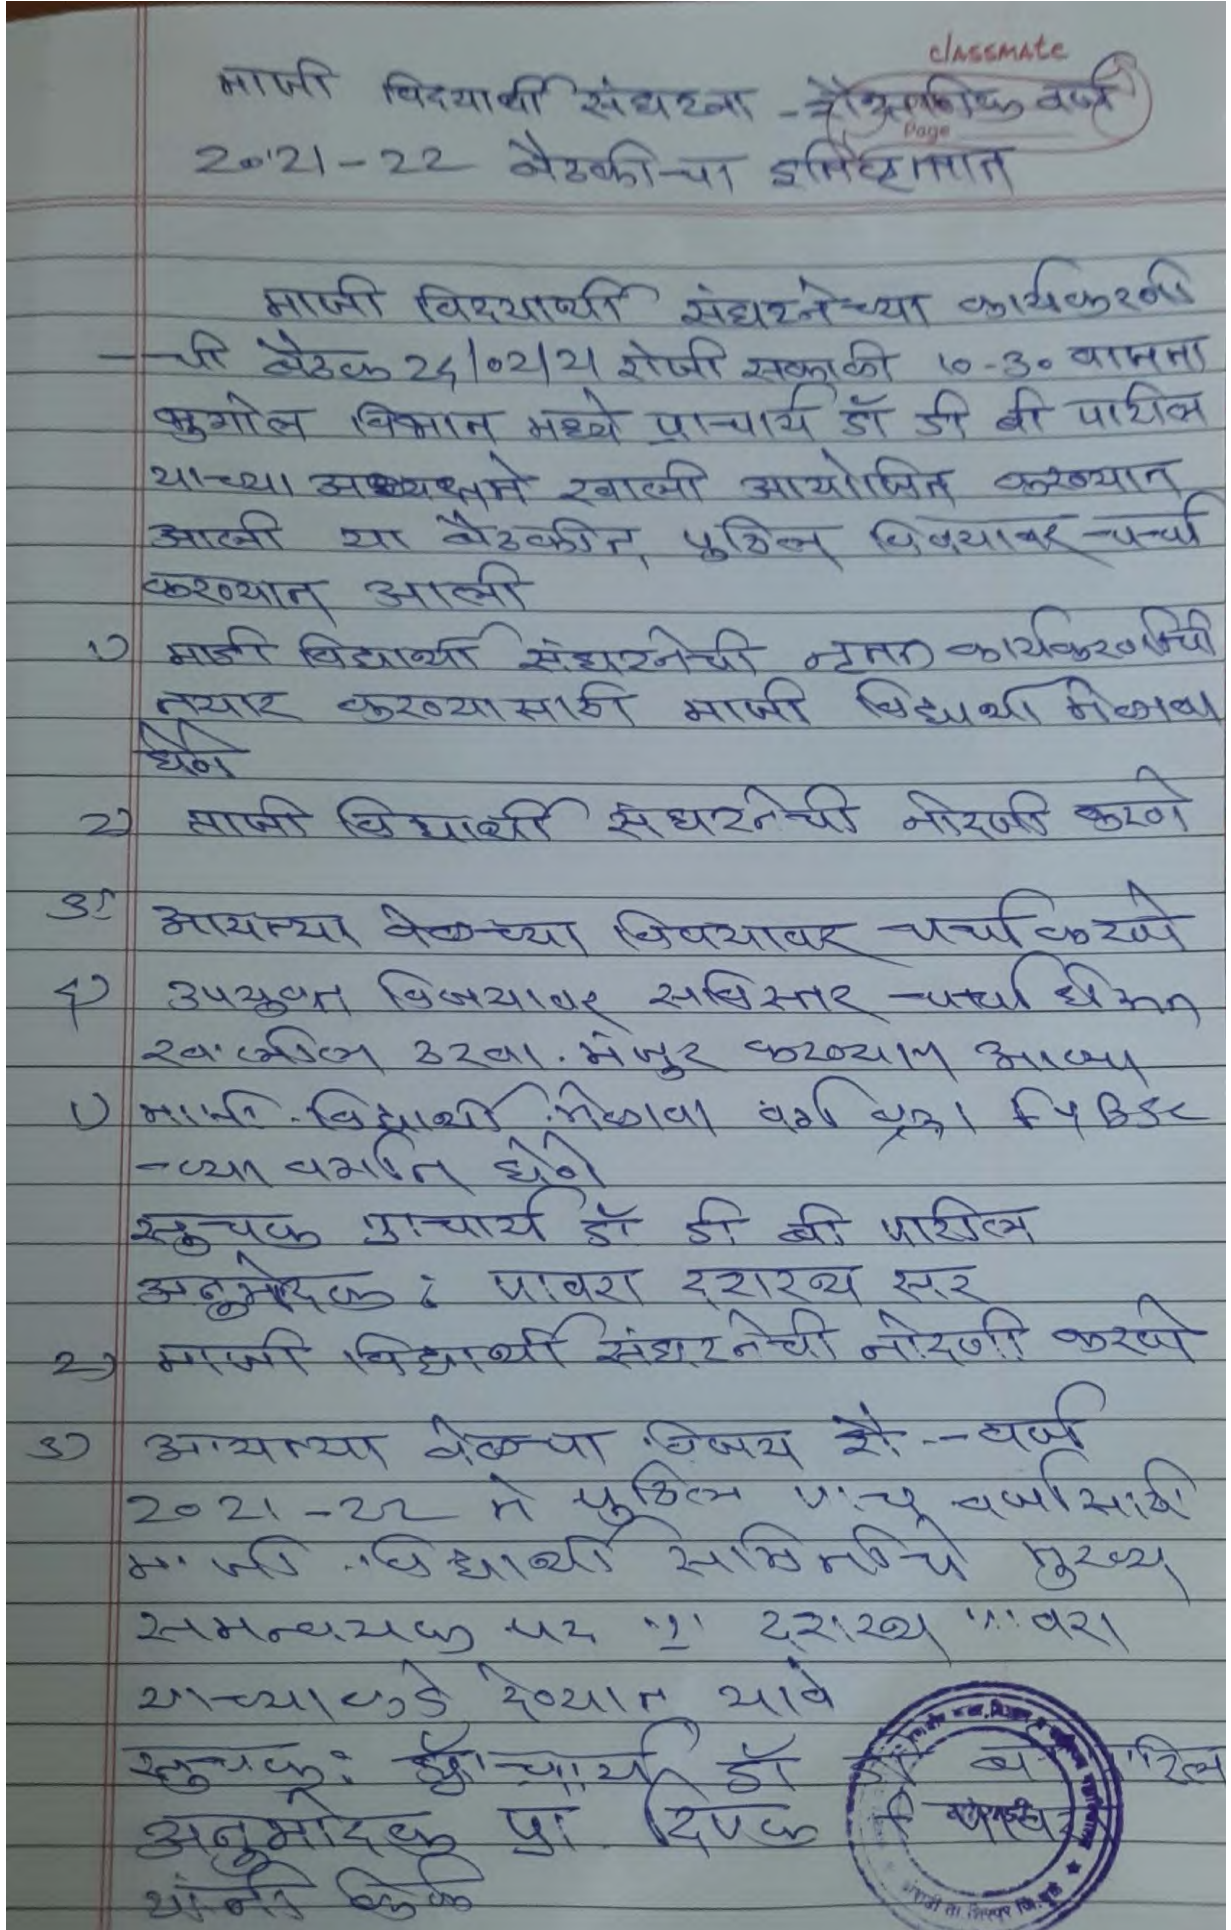 classmate
माजी विदयार्थी संघटना - शैक्षणिक वर्ष
Page
2021-22 बैठकीचा इतिवृत्तात
माजी विदयार्थी संघटनेच्या कार्यकरणी
-ची बैठक 24/02/21 रोजी सकाळी 10-30 वाजता
भुगोल विभाग मध्ये प्राचार्य डॉ डी बी पाटील
याच्या अध्यक्षते खाली आयोजित करण्यात
आली या बैठकीत पुढिल विषयावर चर्चा
करण्यात आली
1) माजी विद्यार्थी संघटनेची नुतन कार्यकरणीची
तयार करण्यासाठी माजी विद्यार्थी मेळावा
घेणे
2) माजी विद्यार्थी संघटनेची नोंदणी करणे
3) आयत्या वेळच्या विषयावर चर्चा करणे
उपयुक्त विषयावर सविस्तर चर्चा घेऊन
खालील ठराव मंजुर करण्यात आला
1) माजी विद्यार्थी मेळावा वर्ग FYBSC
-च्या वर्गात घेणे
सुचक प्राचार्य डॉ डी बी पाटील
अनुमोदक : पावरा दशरथ सर
2) माजी विद्यार्थी संघटनेची नोंदणी करणे
3) आयत्या वेळचा विषय शै. - वर्ष
2021-22 ते पुढिल पाच वर्षासाठी
माजी विद्यार्थी समितीचे मुख्य
समन्वयक पद प्रा दशरथ पावरा
याच्याकडे देण्यात यावे
सुचक : प्राचार्य डॉ डी बी पाटिल
अनुमोदक प्रा दिपक
यांनी केले